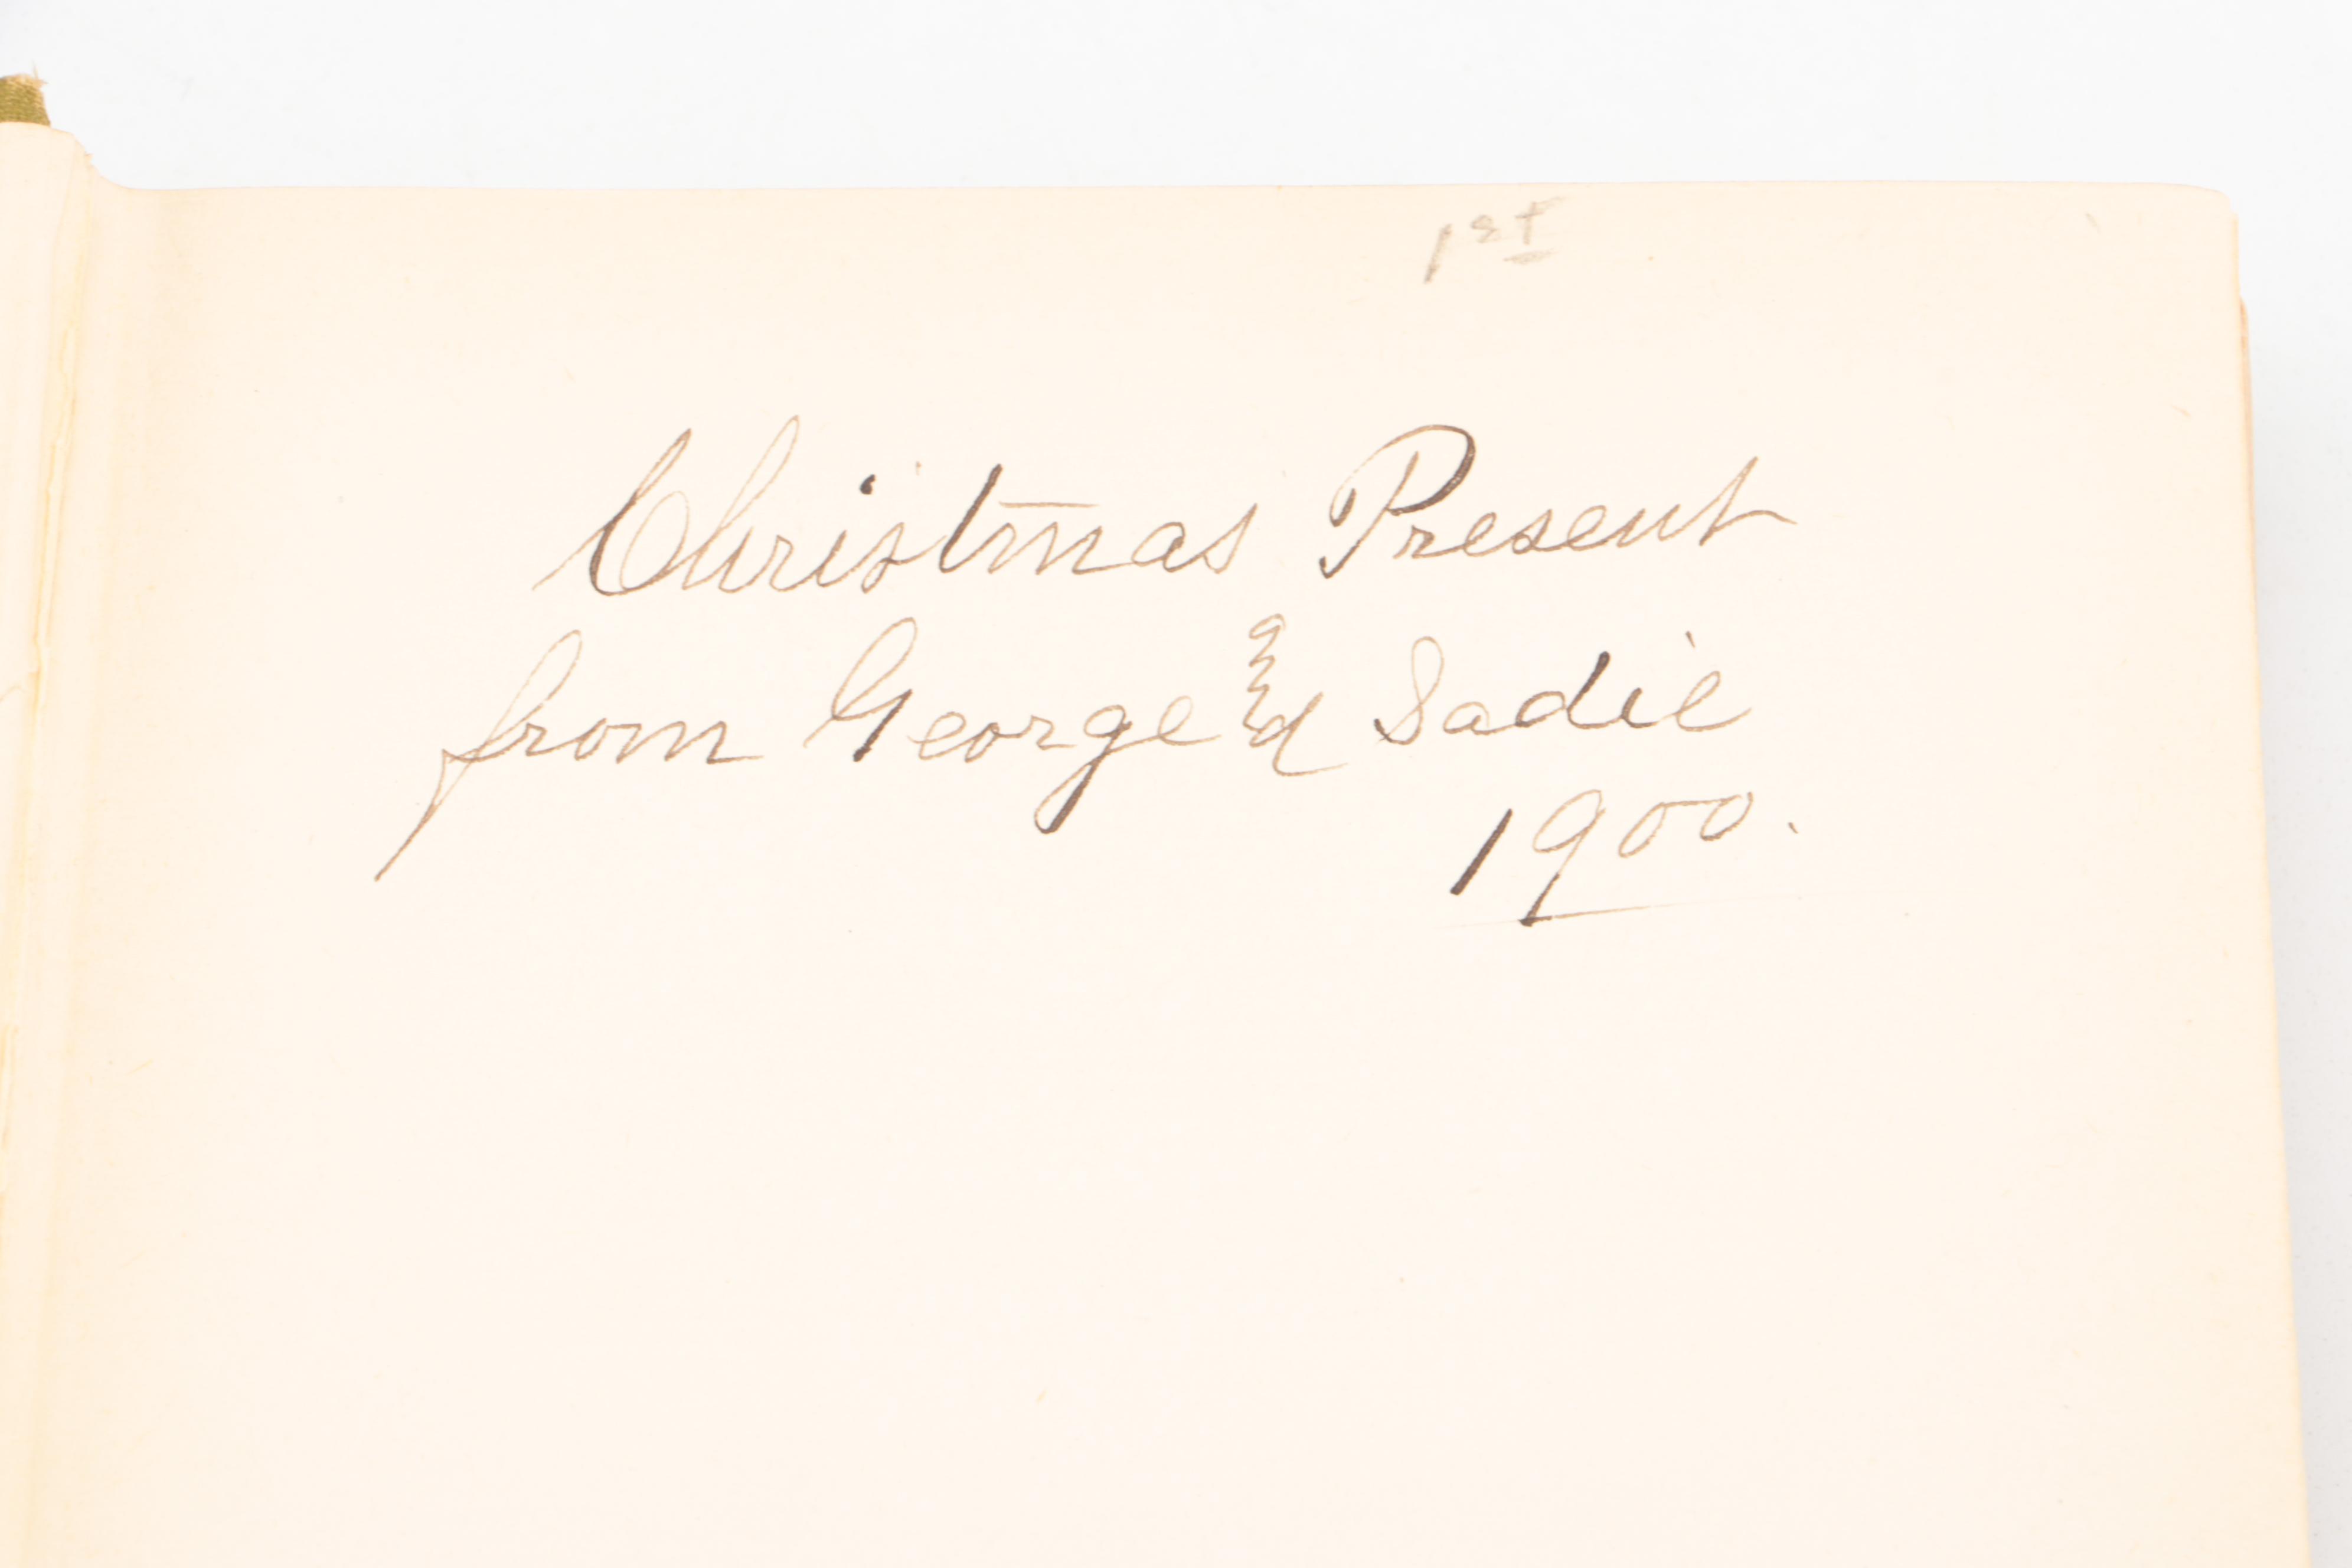 1st
Christmas Present
from George & Sadie
1900.